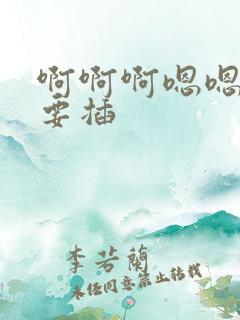 啊啊啊嗯嗯
要插
李若蘭
未经同意禁止转载